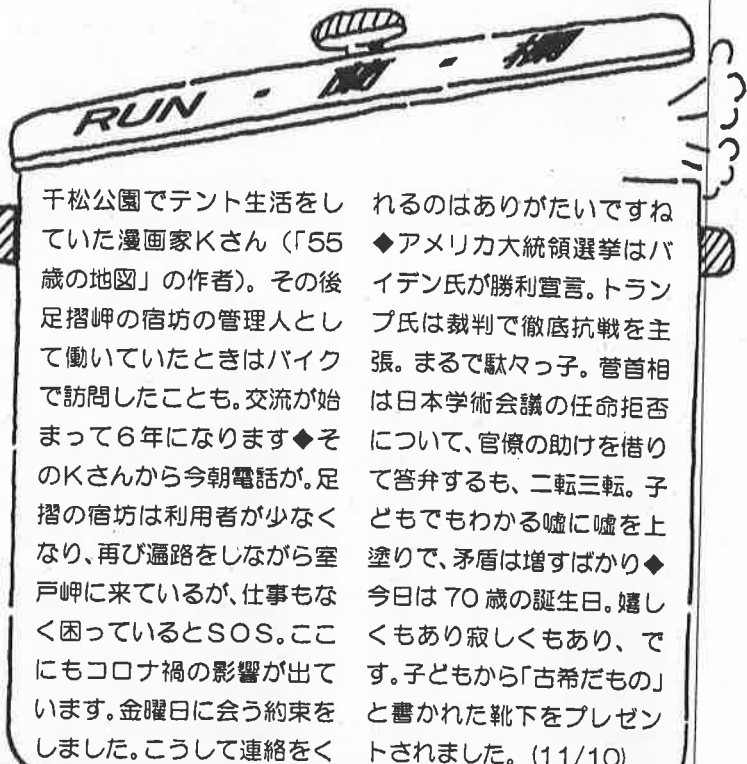 RUN・蘭・欄
千松公園でテント生活をし
ていた漫画家Kさん（「55
歳の地図」の作者）。その後
足摺岬の宿坊の管理人とし
て働いていたときはバイク
で訪問したことも。交流が始
まって6年になります◆そ
のKさんから今朝電話が。足
摺の宿坊は利用者が少なく
なり、再び遍路をしながら室
戸岬に来ているが、仕事もな
く困っているとSOS。ここ
にもコロナ禍の影響が出て
います。金曜日に会う約束を
しました。こうして連絡をく
れるのはありがたいですね
◆アメリカ大統領選挙はバ
イデン氏が勝利宣言。トラン
プ氏は裁判で徹底抗戦を主
張。まるで駄々っ子。菅首相
は日本学術会議の任命拒否
について、官僚の助けを借り
て答弁するも、二転三転。子
どもでもわかる嘘に嘘を上
塗りで、矛盾は増すばかり◆
今日は70歳の誕生日。嬉し
くもあり寂しくもあり、で
す。子どもから「古希だもの」
と書かれた靴下をプレゼン
トされました。(11/10)